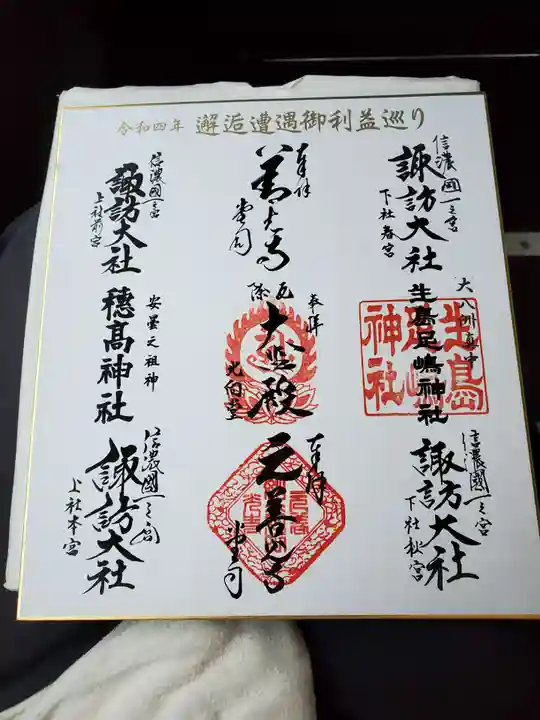 令和四年 邂逅遭遇御利益巡り
信濃國一之宮
諏訪大社
下社春宮
奉拝
善光寺
堂司
信濃國一之宮
諏訪大社
上社前宮
大八洲真中
生島足嶋神社
生島足嶋神社
奉拝
厄除
大悲殿
北向堂
安曇之祖神
穂高神社
信濃國一之宮
諏訪大社
下社秋宮
奉拝
元善光寺
堂司
信濃國一之宮
諏訪大社
上社本宮